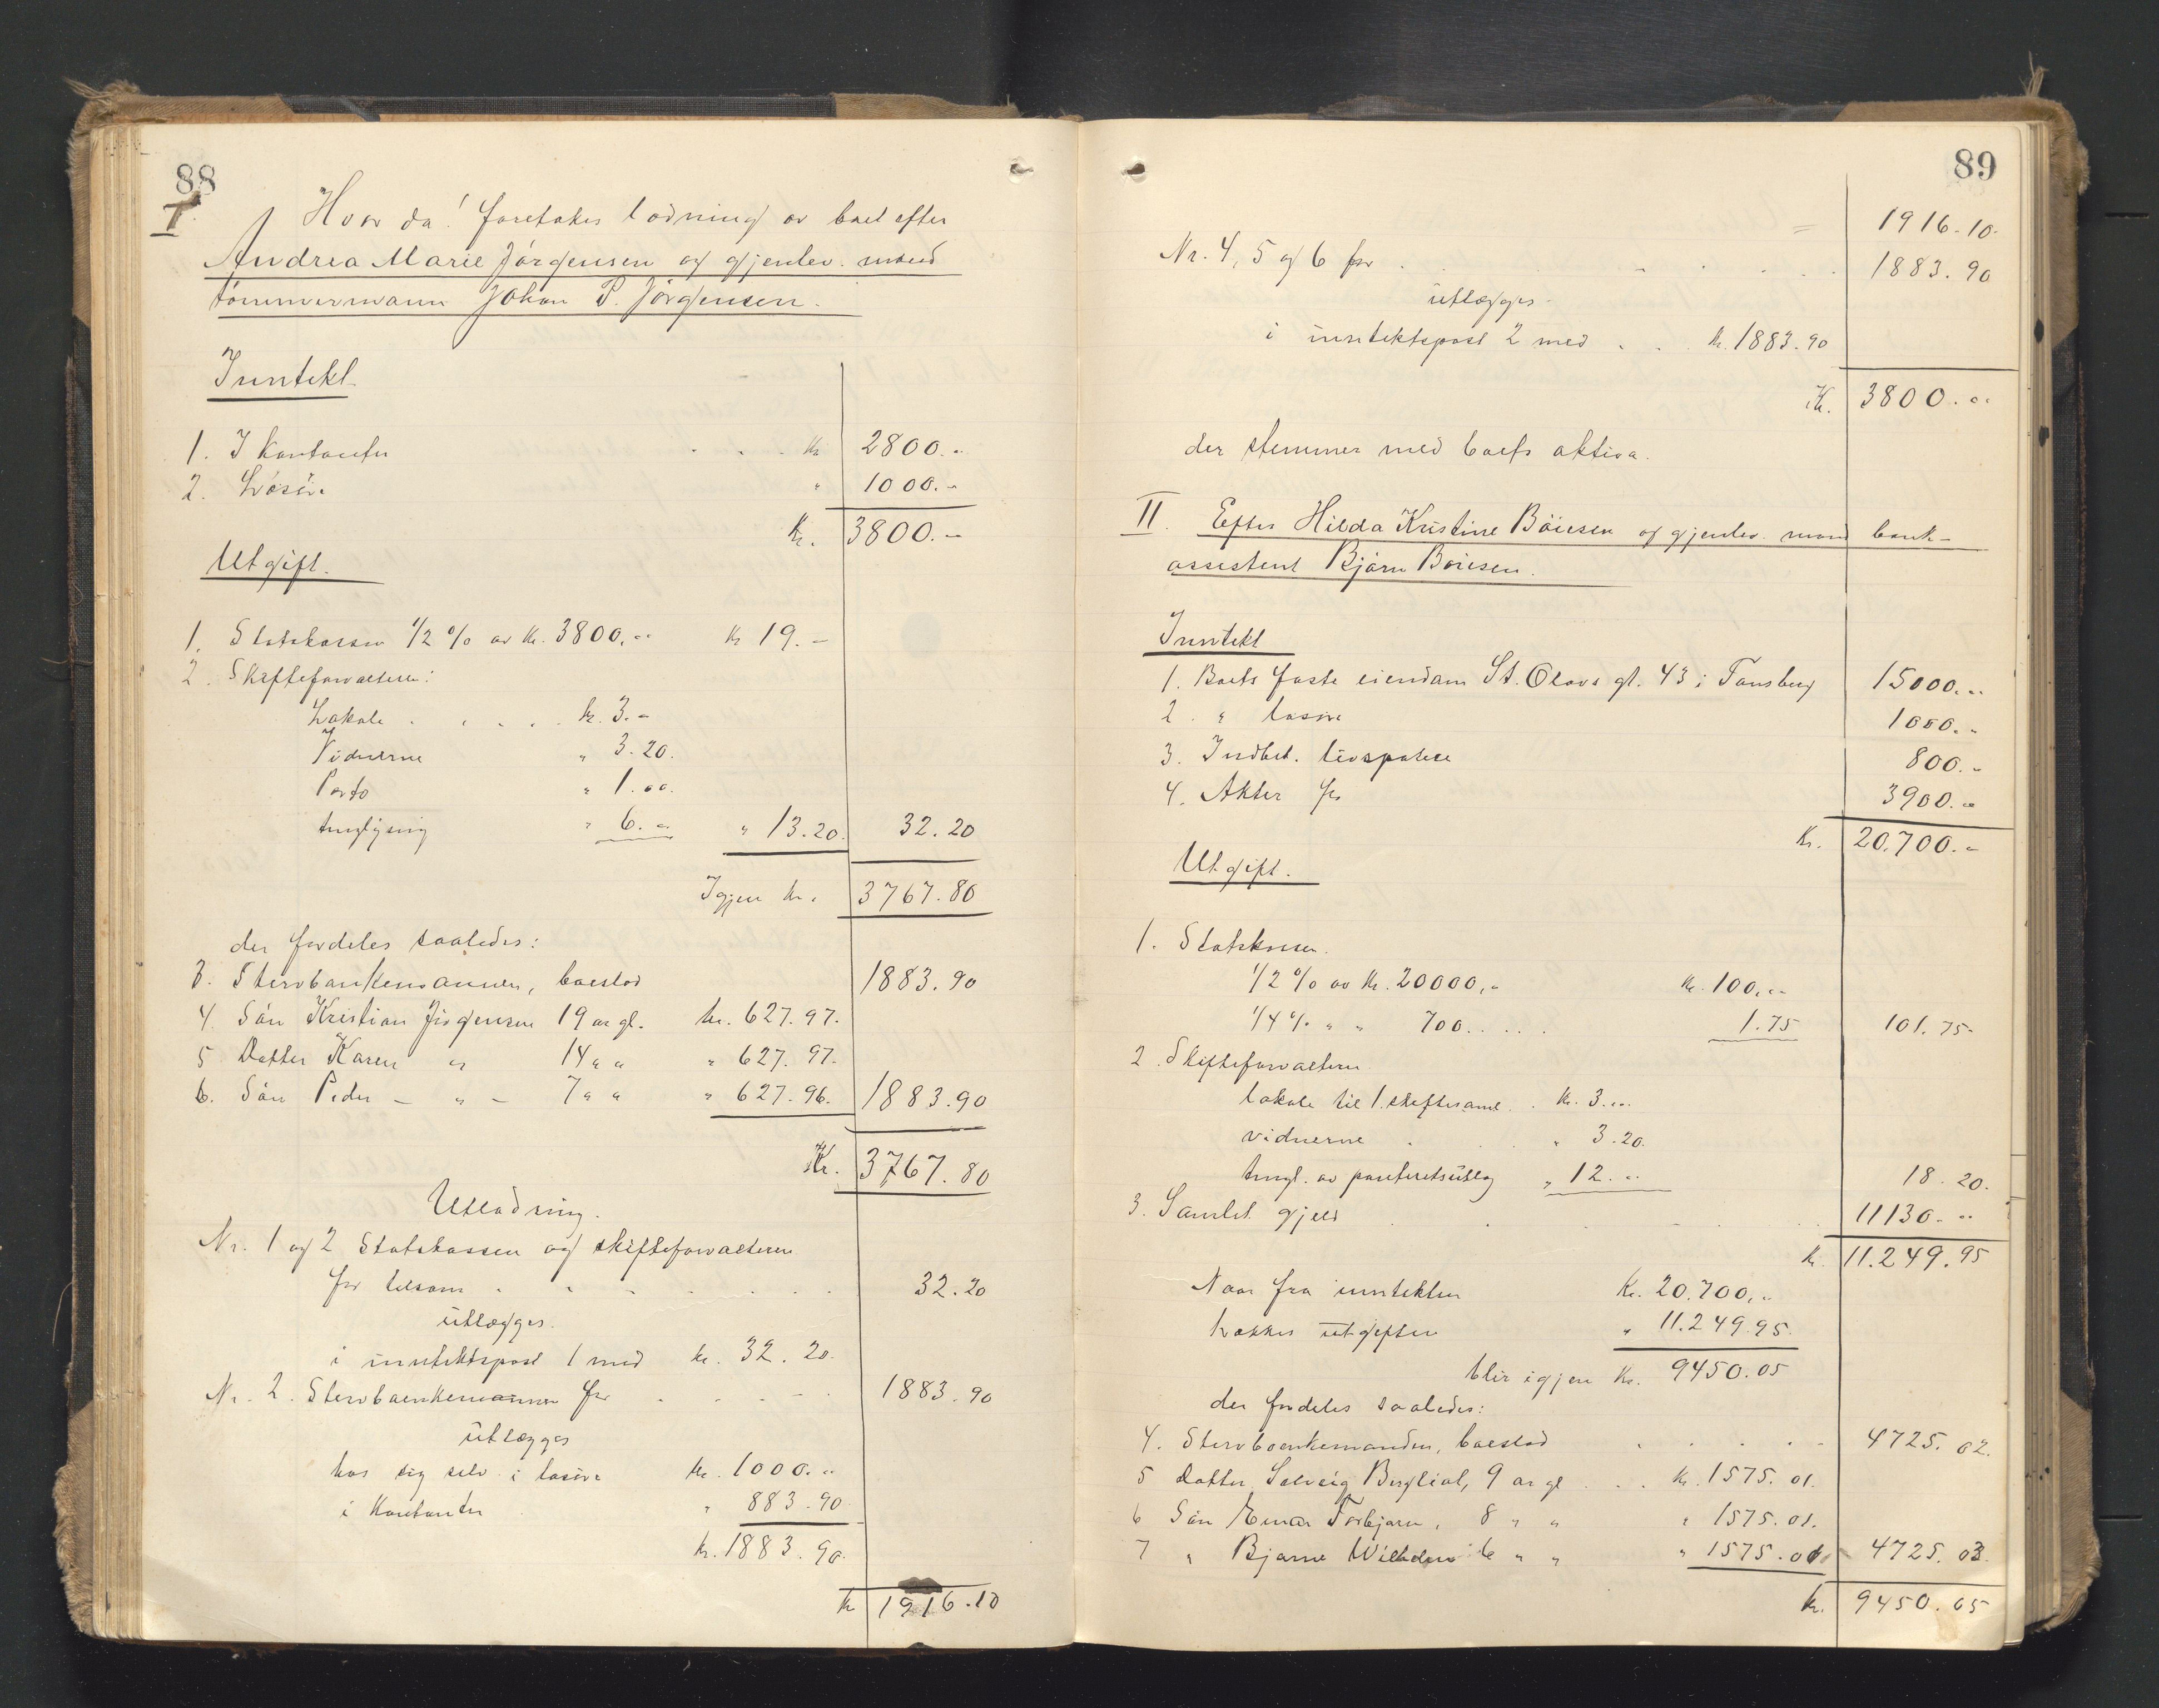 88
I.
Hvor da! foretokes lodning av boet efter
Andrea Marie Jörgensen og gjenlev. mand
tömmermann Johan P. Jörgensen.
Inntekt
1. I kontanter . . . kr 2800.-
2. Lösöre " 1000.-
Kr. 3800.-
Utgift.
1. Statskassen 1/2 % av kr. 3800.-- kr 19.-
2. Skifteforvalteren:
Lokale . . . . . kr. 3.-
Vidnerne " 3.20.
Porto " 1.00.
tinglysning " 6.- " 13.20. 32.20
Igjen kr. 3767.80
der fordeles saaledes:
3. Stervboenkemannen, boeslod 1883.90
4. Sön Kristian Jörgensen 19 ar gl. kr. 627.97.
5 Datter Karen " 14 " " " 627.97.
6. Sön Peder - " - 7 " " " 627.96. 1883.90
Kr. 3767.80
Utlodning.
Nr. 1 og 2 Statskassen og skifteforvalteren
for tilsam . . . . . . 32.20
utlægges.
i inntektspost 1 med kr. 32.20.
Nr. 2. Stervboenkemannen for . . . . 1883.90
utlegges
hos sig selv i lösöre kr. 1000.--
i kontanter " 883.90
kr. 1883.90.
kr 1916.10
89
1916.10.
Nr. 4, 5 og 6 for . . . . . . 1883.90
utlægges
i inntektspost 2 med . . kr. 1883.90
Kr. 3800.--
der stemmer med boets aktiva.
II. Efter Hilda Kristine Böiesen og gjenlev. mand bank-
assistent Bjørn Böiesen.
Inntekt
1. Boets faste eiendom St. Olavs gt. 43 i Tønsberg 15000.--
2. " lösöre 1000.-
3. Indbet. livspolise 800.-
4. Aktier for 3900.-
Kr. 20.700.-
Utgift.
1. Statskassen.
1/2 % av kr. 20000,- kr. 100,--
1/4 % " " 700 . . . . 1.75 101.75-
2. Skifteforvalteren
lokale til 1. skiftesaml. . kr. 3.--
vidnerne . . . " 3.20.
tingl. av panteretsutlæg " 12.-- 18.20.
3. Samlet gjeld . . . . . . 11130.--
kr. 11.249.95
Naar fra inntekten Kr. 20.700,-
trækkes utgiften " 11.249.95.
blir igjen Kr. 9450.05
der fordeles saaledes:
4. Stervboenkemanden, boeslod . . . . . 4725.02.
5 datter Solveig Bergliot, 9 ar gl . . . kr. 1575.01.
6 Sön Einar Torbjørn, 8 " " " 1575.01.
7 " Bjarne Wilhelm 6 " " " 1575.01 4725.03.
kr. 9450.05